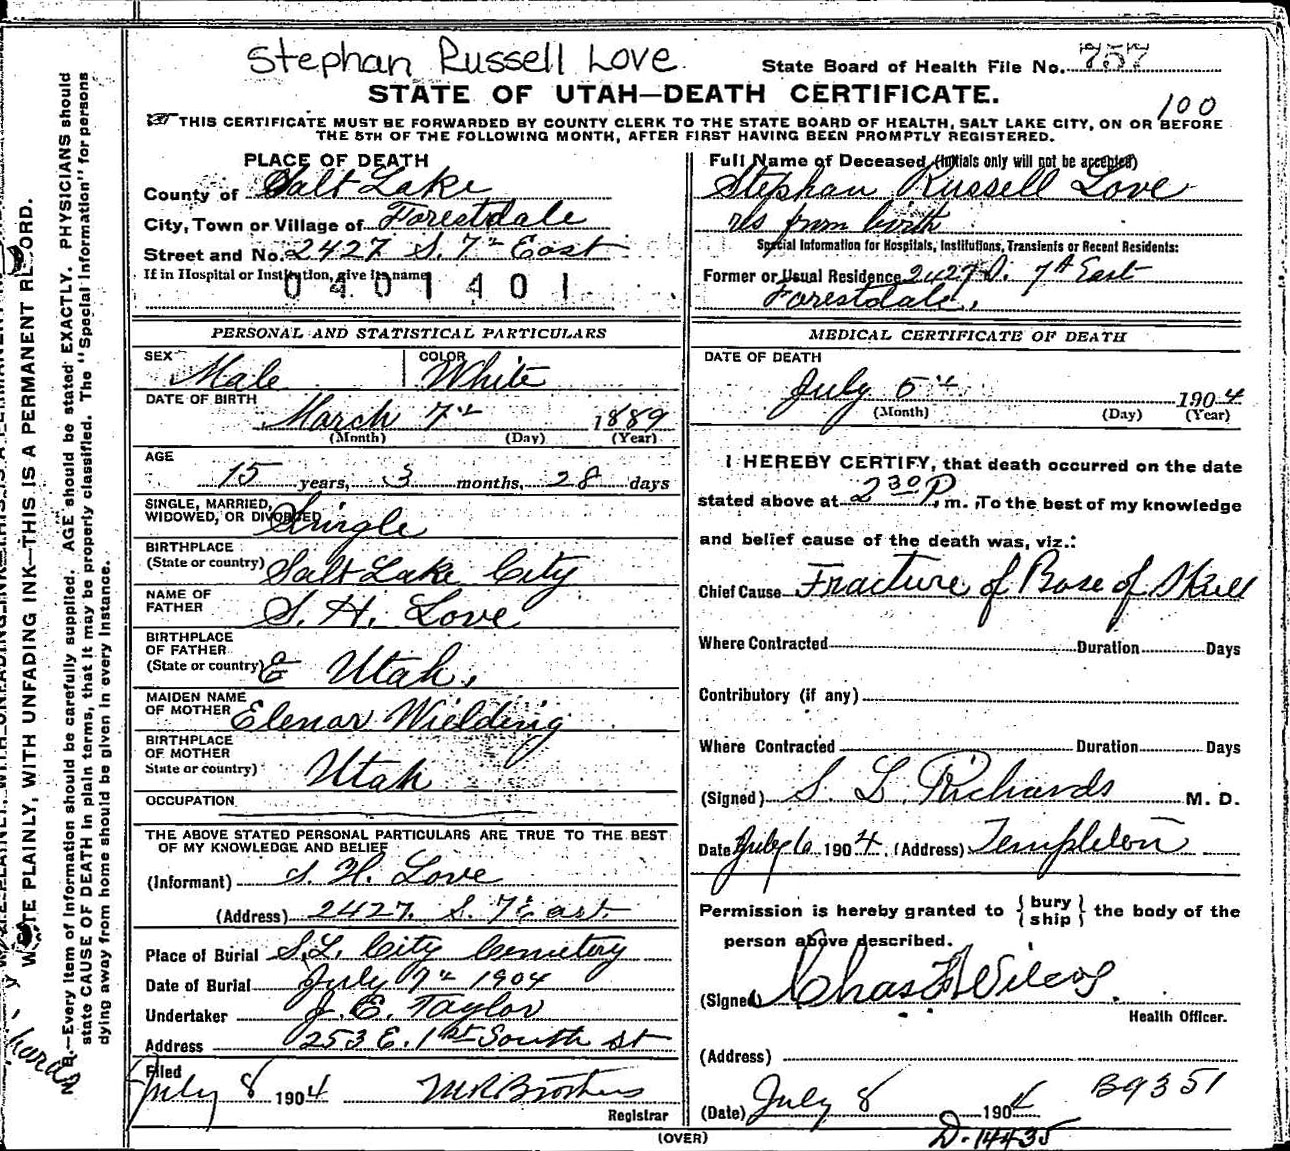 Stephan Russell Love
State Board of Health File No. 757
STATE OF UTAH—DEATH CERTIFICATE.
100
THIS CERTIFICATE MUST BE FORWARDED BY COUNTY CLERK TO THE STATE BOARD OF HEALTH, SALT LAKE CITY, ON OR BEFORE
THE 5TH OF THE FOLLOWING MONTH, AFTER FIRST HAVING BEEN PROMPTLY REGISTERED.
PLACE OF DEATH
County of Salt Lake
City, Town or Village of Forestdale
Street and No. 2427 S. 7th East
If in Hospital or Institution, give its name
0401401
Full Name of Deceased (Initials only will not be accepted)
Stephan Russell Love
rs from birth
Special Information for Hospitals, Institutions, Transients or Recent Residents:
Former or Usual Residence 2427 S. 7th East
Forestdale,
PERSONAL AND STATISTICAL PARTICULARS
SEX Male
COLOR White
DATE OF BIRTH
March 7th 1889
(Month) (Day) (Year)
AGE
15 years, 3 months, 28 days
SINGLE, MARRIED,
WIDOWED, OR DIVORCED Single
BIRTHPLACE
(State or country) Salt Lake City
NAME OF
FATHER S. H. Love
BIRTHPLACE
OF FATHER
(State or country) Utah,
MAIDEN NAME
OF MOTHER Elenor Wielding
BIRTHPLACE
OF MOTHER
State or country) Utah
OCCUPATION
THE ABOVE STATED PERSONAL PARTICULARS ARE TRUE TO THE BEST
OF MY KNOWLEDGE AND BELIEF
(Informant) S. H. Love
(Address) 2427 S. 7 East
Place of Burial S.L. City Cemetery
Date of Burial July 7th 1904
Undertaker J. E. Taylor
Address 253 E. 1st South St
Filed
July 8 1904
Registrar
MEDICAL CERTIFICATE OF DEATH
DATE OF DEATH
July 5th 1904
(Month) (Day) (Year)
I HEREBY CERTIFY, that death occurred on the date
stated above at 2 30 P. m. To the best of my knowledge
and belief cause of the death was, viz.:
Chief Cause Fracture of Base of Skull
Where Contracted Duration Days
Contributory (if any)
Where Contracted Duration Days
(Signed) S. L. Richards M. D.
Date July 6 1904. (Address) Templeton
Permission is hereby granted to { bury ship } the body of the
person above described.
(Signed) Chas F. Wilcox
Health Officer.
(Address)
(Date) July 8 1904
B9351
D-14435
(OVER)
WRITE PLAINLY, WITH UNFADING INK—THIS IS A PERMANENT RECORD.
N. B.—Every item of information should be carefully supplied. AGE should be stated EXACTLY. PHYSICIANS should
state CAUSE OF DEATH in plain terms, that it may be properly classified. The "Special Information" for persons
dying away from home should be given in every instance.